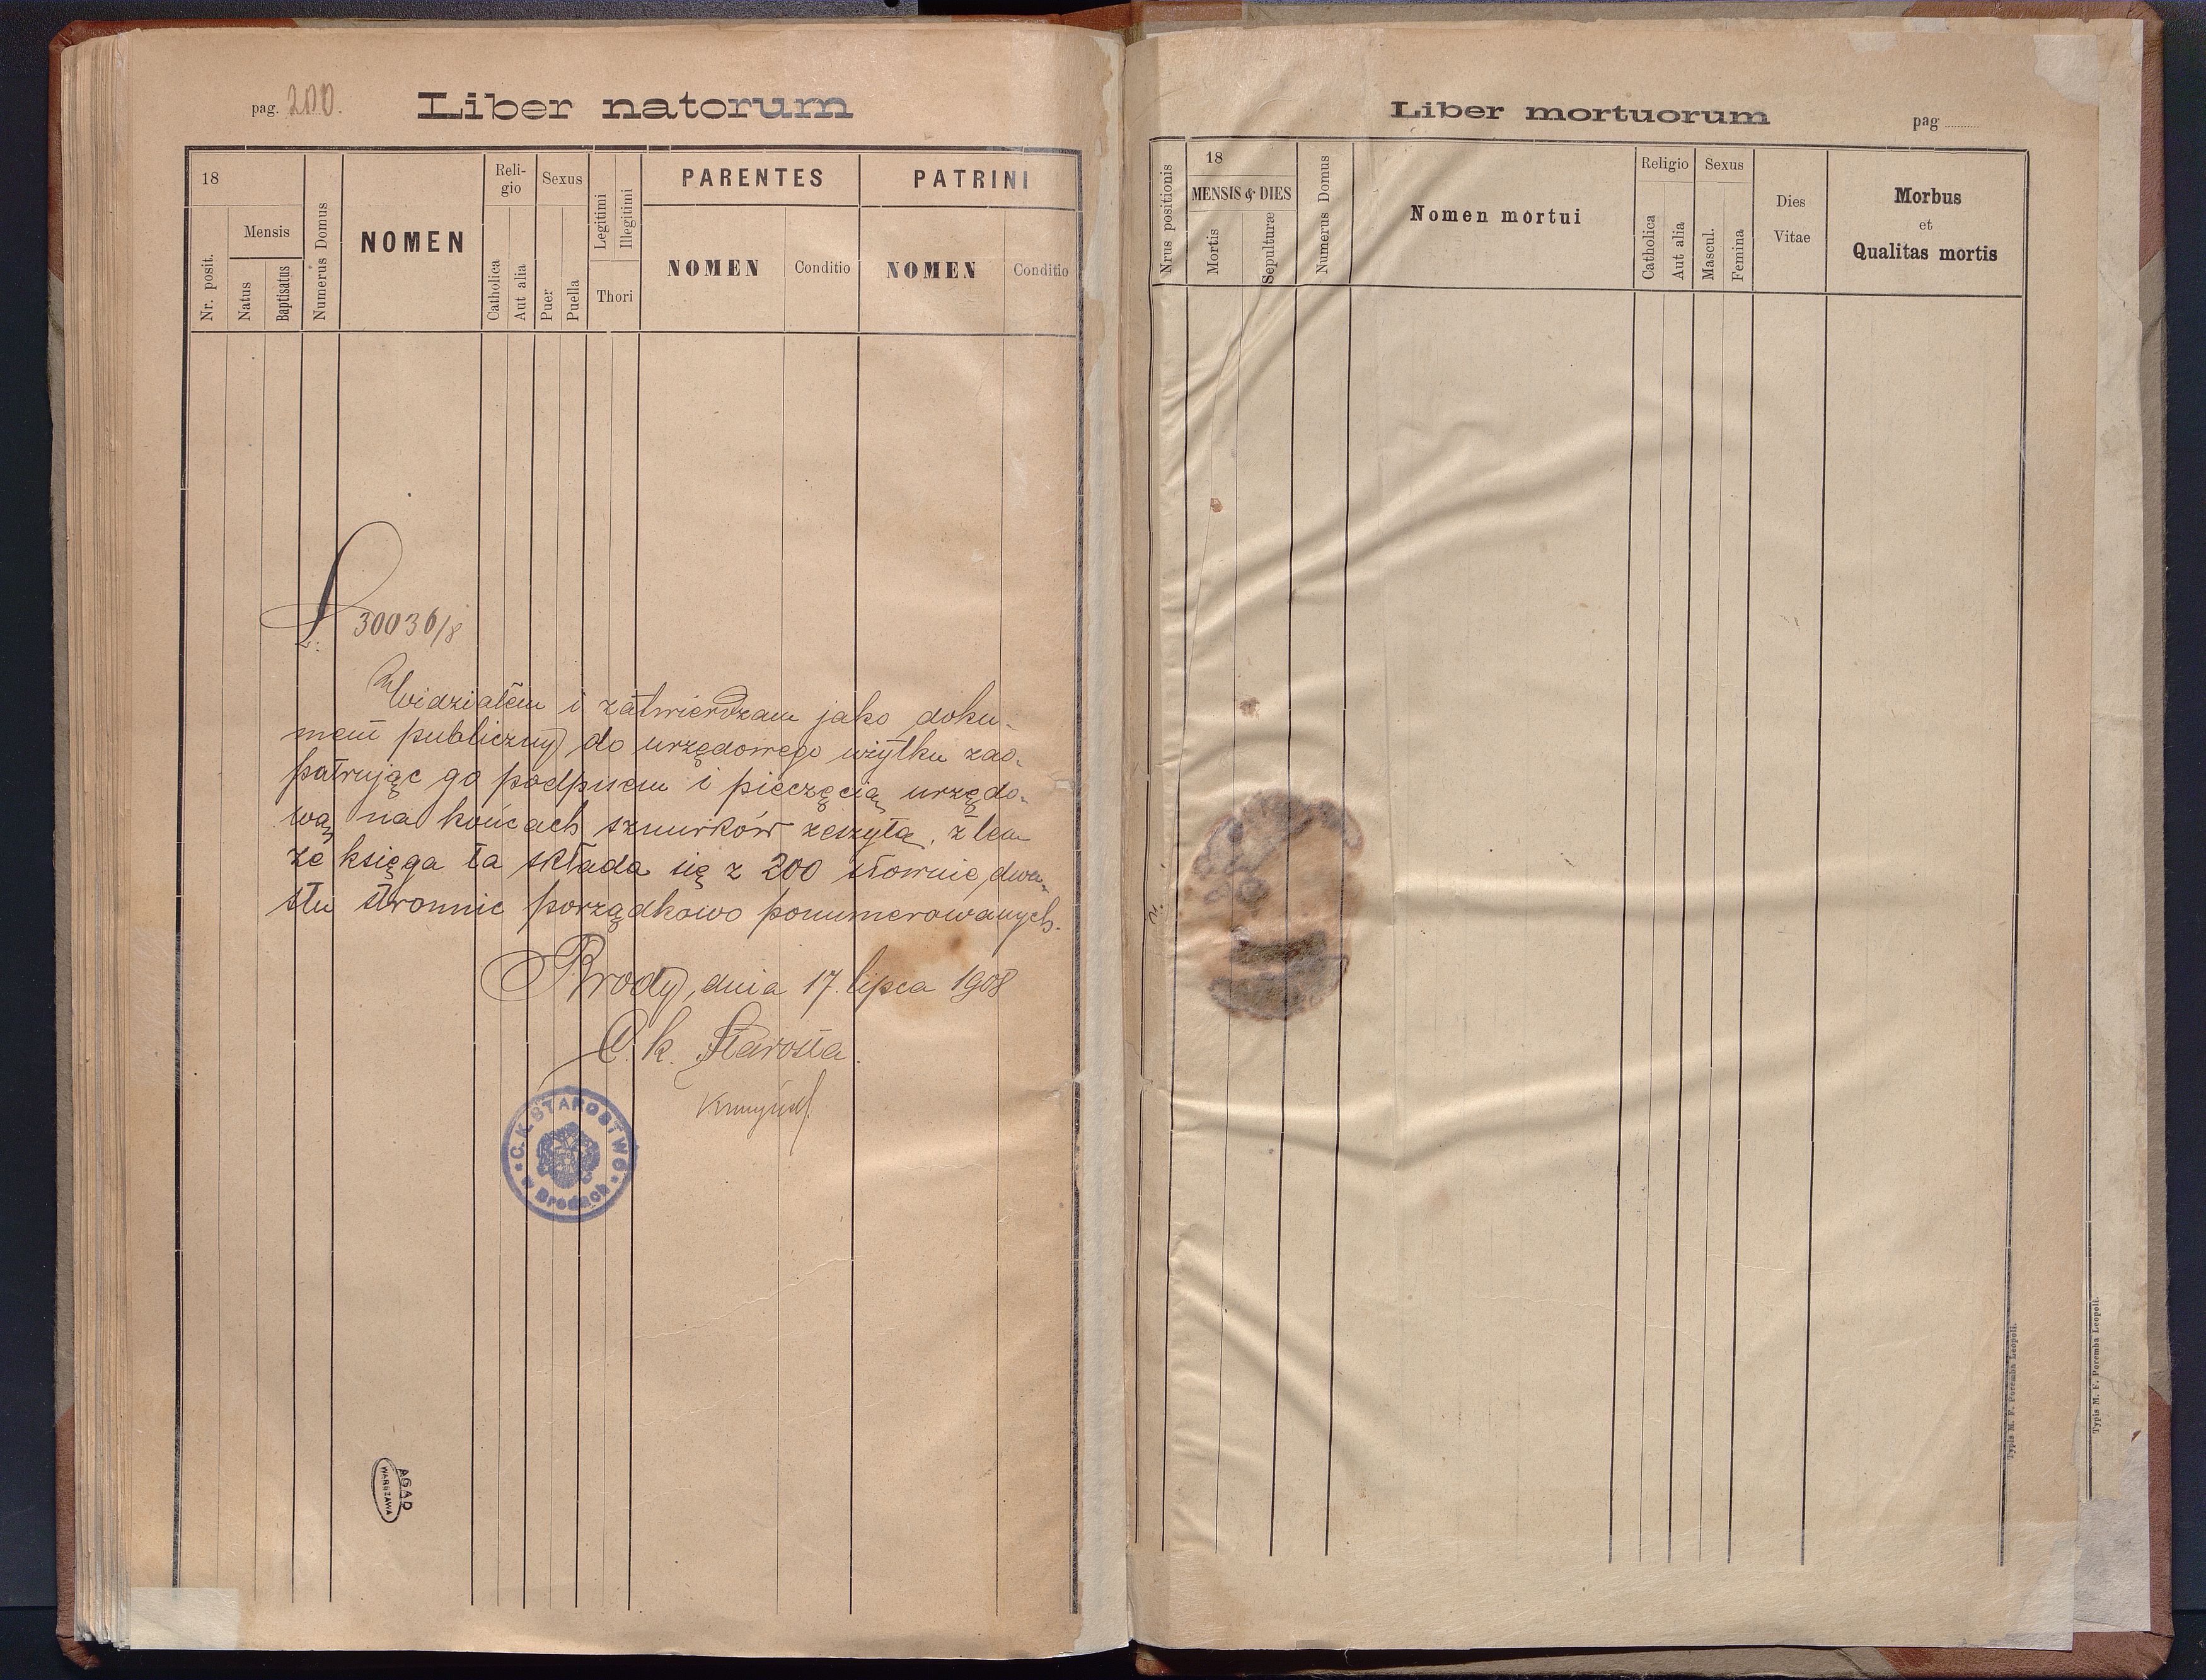 pag. 200.
Liber natorum
18
Mensis
Nr. posit.
Natus
Baptisatus
Numerus Domus
NOMEN
Reli-
gio
Catholica
Aut alia
Sexus
Puer
Puella
Legitimi
Illegitimi
Thori
PARENTES
NOMEN
Conditio
PATRINI
NOMEN
Conditio
L: 30036/8
Widziałem i zatwierdzam jako doku-
ment publiczny do urzędowego użytku zao-
patrując go podpisem i pieczęcią urzędo-
wą na końcach sznurków zeszyta, z tem
że księga ta składa się z 200 słownie dwu-
stu stronnic porządkowo ponumerowanych.
Brody, dnia 17. lipca 1908
C. k. Starosta
C. K. STAROSTWO
w Brodach
AGAD
WARSZAWA
Liber mortuorum
pag
Nrus positionis
18
MENSIS & DIES
Mortis
Sepulturæ
Numerus Domus
Nomen mortui
Religio
Catholica
Aut alia
Sexus
Mascul.
Femina
Dies
Vitae
Morbus
et
Qualitas mortis
Typis M. F. Poremba Leopoli.
Typis M. F. Poremba Leopoli.